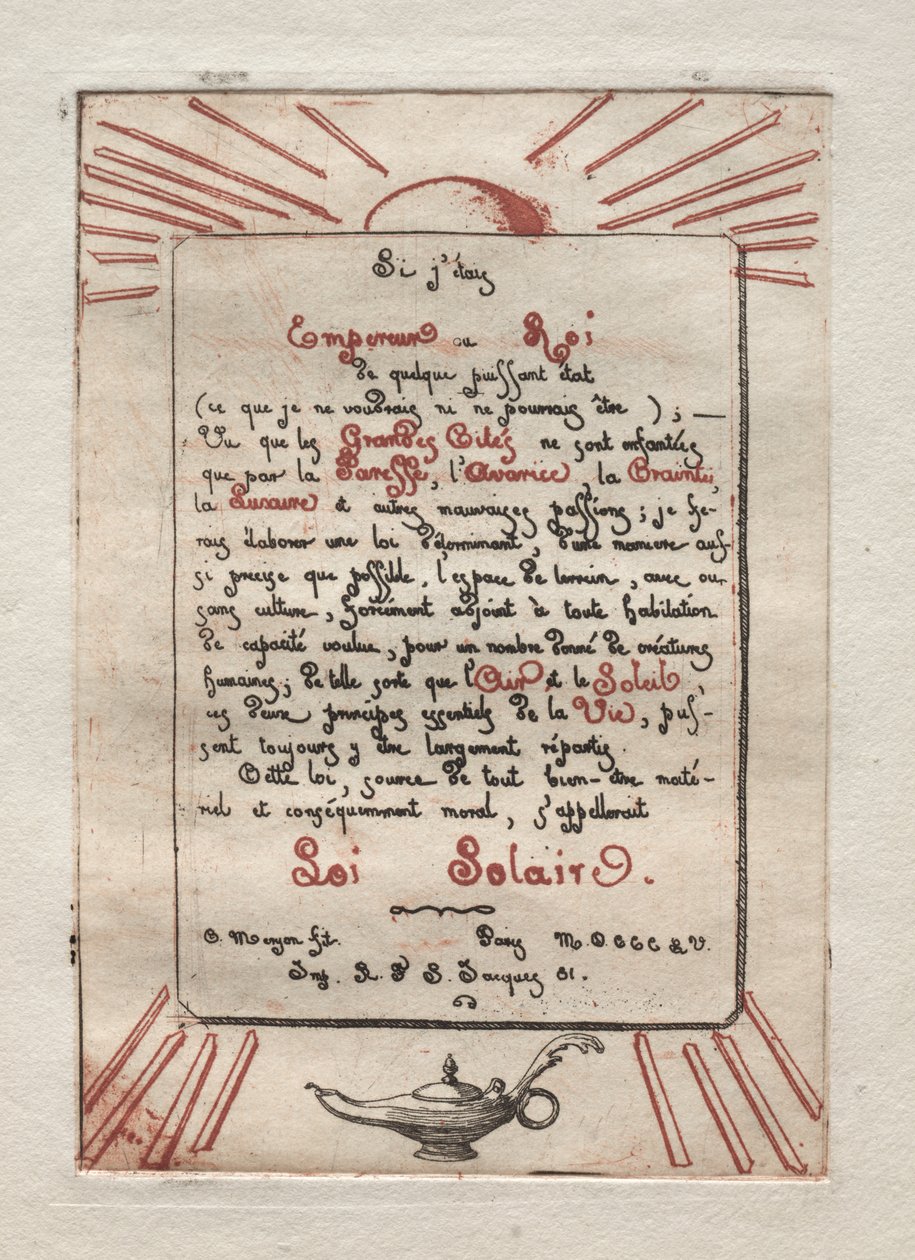 Si j'étais
Empereur ou Roi
de quelque puissant état
(ce que je ne voudrais ni ne pourrais être) ; —
Vu que les Grandes Cités ne sont enfantées
que par la Paresse, l'Avarice, la Crainte,
la Luxure et autres mauvaises passions ; je fe-
rais élaborer une loi déterminant, d'une manière aus-
si précise que possible, l'espace de terrain, avec ou
sans culture, forcément adjoint à toute habitation
de capacité voulue, pour un nombre donné de créatures
humaines ; de telle sorte que l'Air et le Soleil,
ces deux principes essentiels de la Vie, puis-
sent toujours y être largement répartis.
Cette loi, source de tout bien-être maté-
riel et conséquemment moral, s'appellerait
Loi Solaire.
C. Meryon fit. Paris M.D.CCC LV.
Imp. R. N S. Jacques 81.